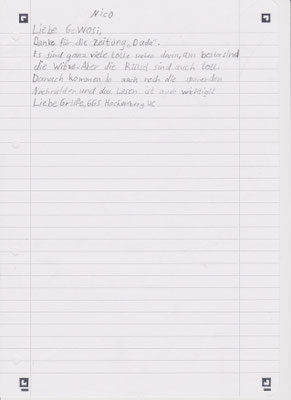 Nico
Liebe GeWoSi,
Danke für die Zeitung „Duda“.
Es sind ganz viele tolle sachen darin, am besten sind
die Witze. Aber die Rätsel sind auch toll.
Danach kommen auch noch die spannenden
Nachrichten und das Lesen ist auch wichtig!!
Liebe Grüße, GGS Hackenberg 4c